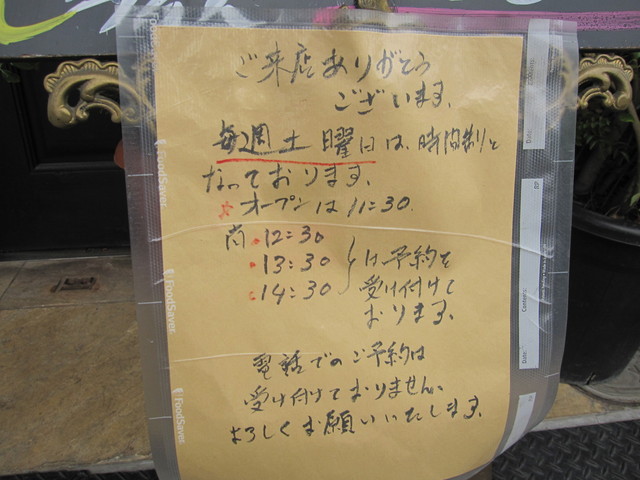 ご来店ありがとう
ございます。
毎週土曜日は、時間制と
なっております。
☆オープンは11:30
尚・12:30
・13:30
・14:30
は予約を
受け付けて
おります。
電話でのご予約は
受け付けておりません。
よろしくお願いいたします。
FoodSaver
FoodSaver
FoodSaver
Date:
Contents:
Date: